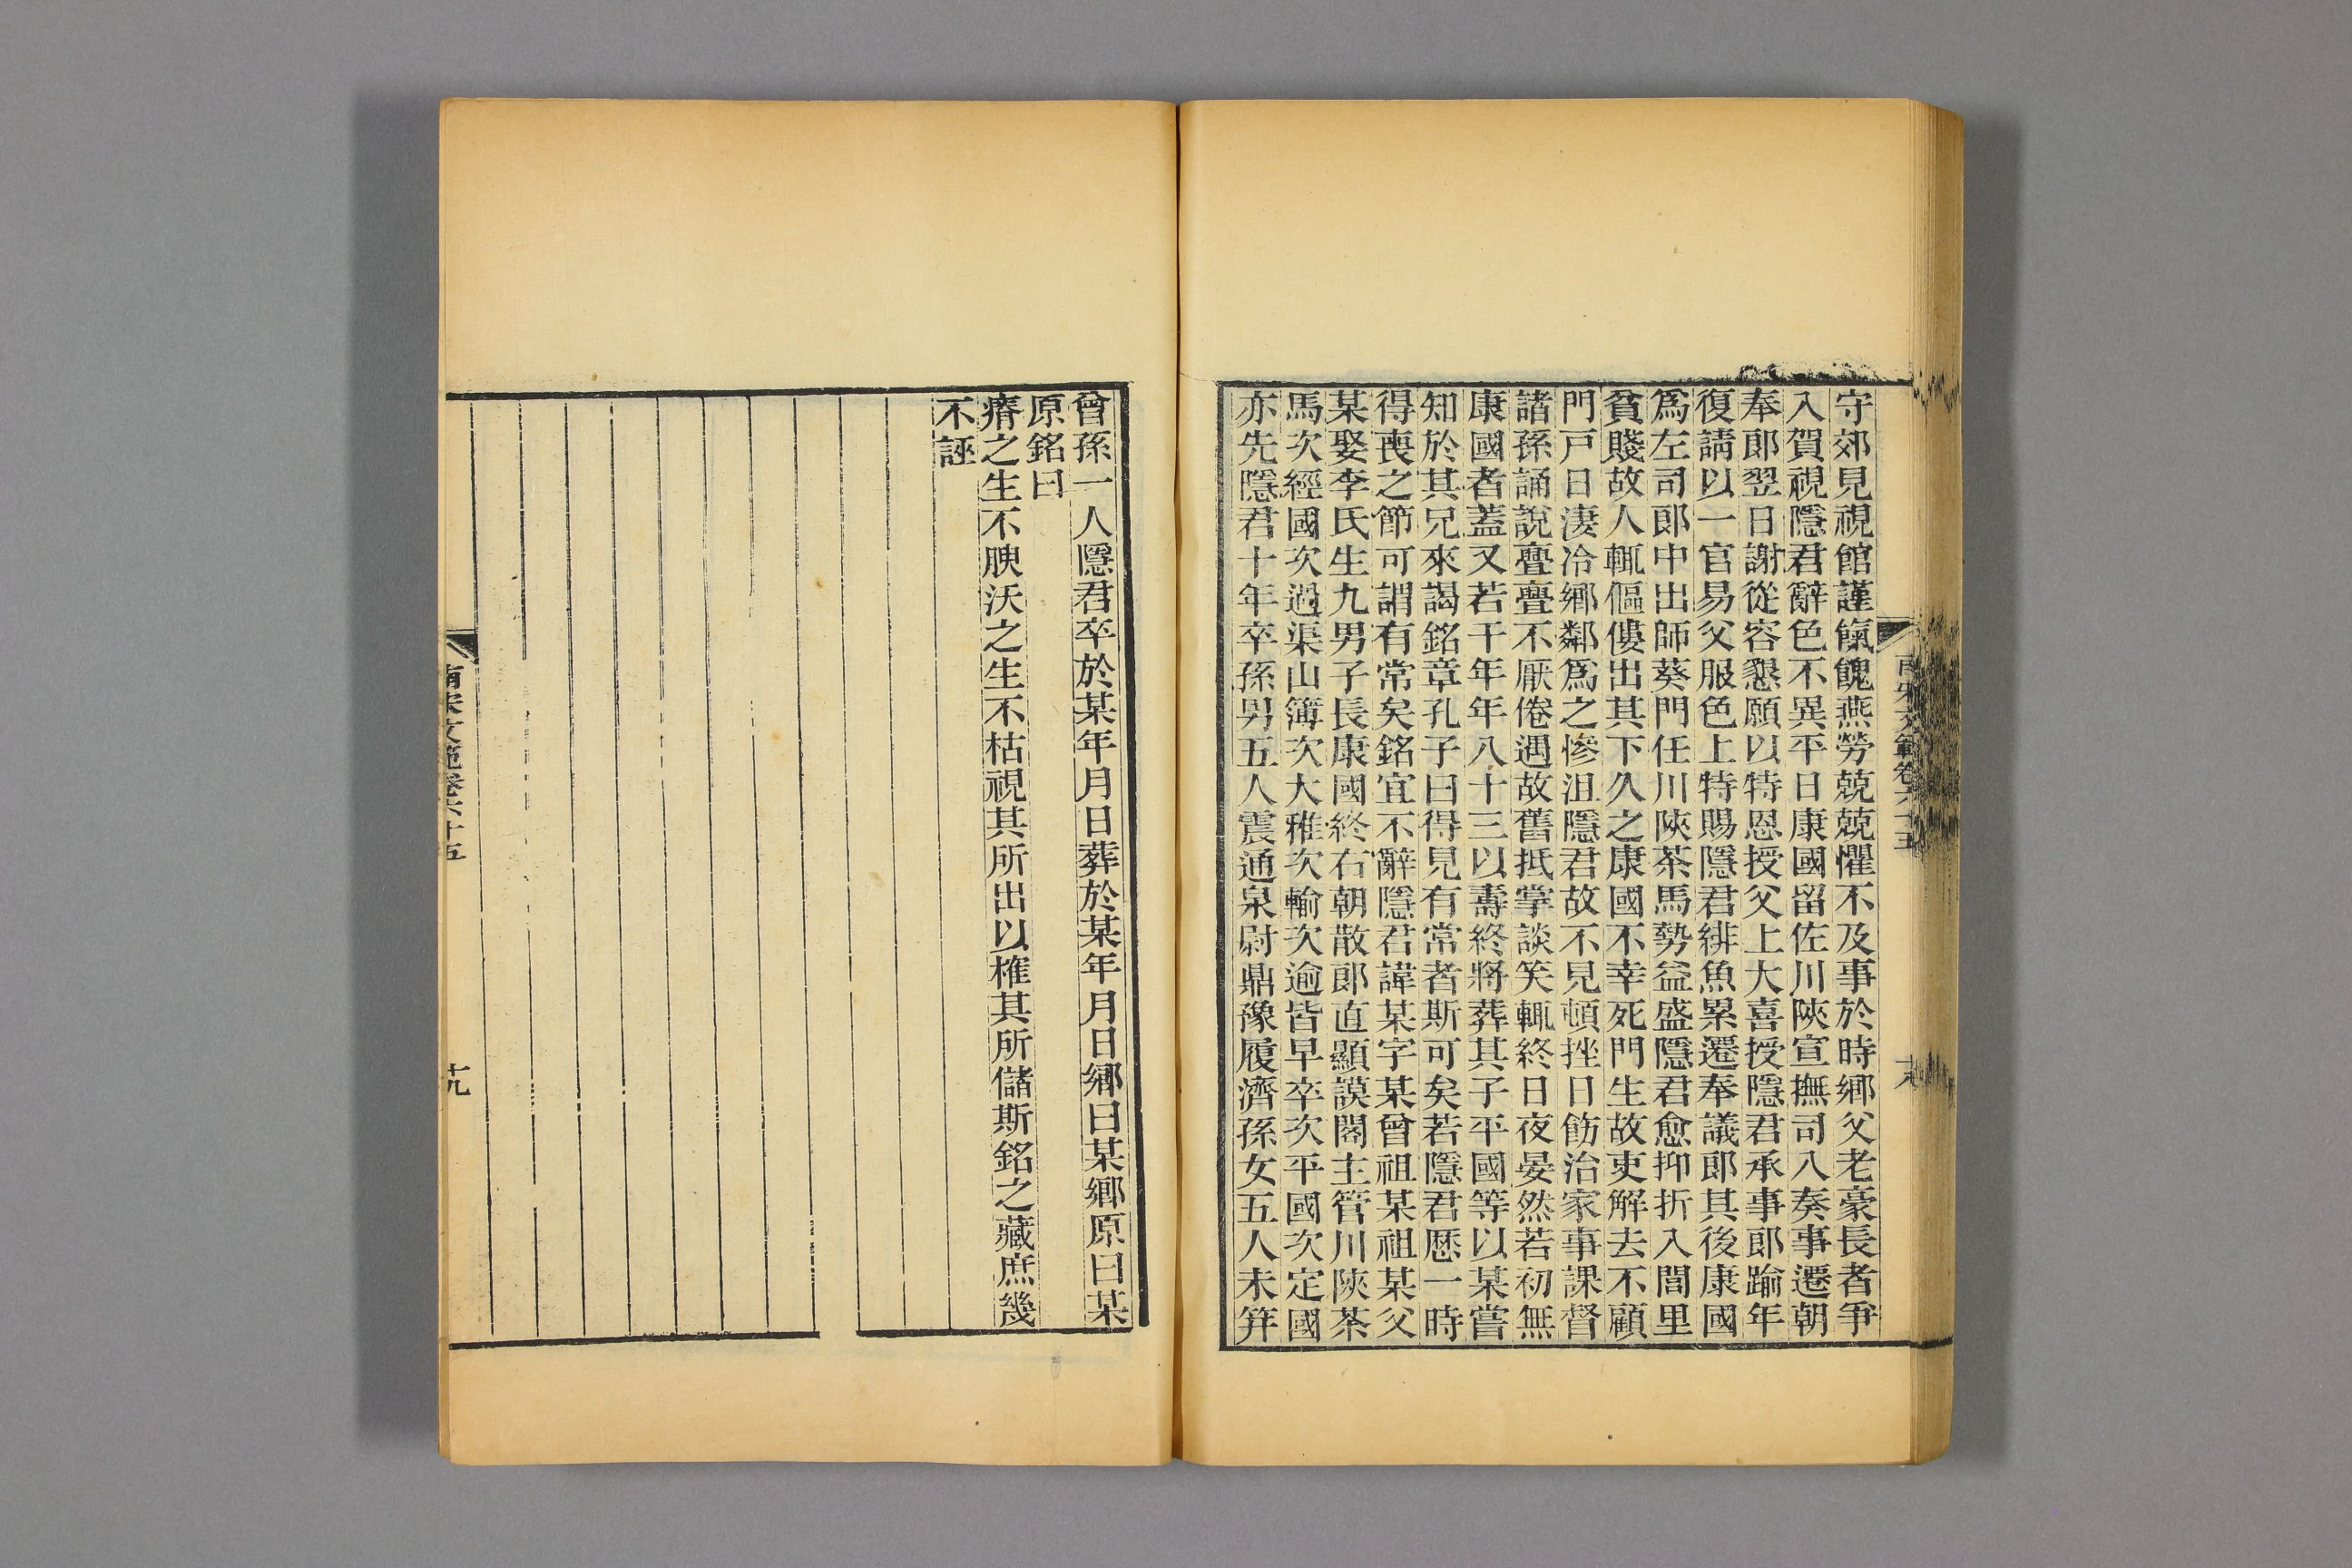 守郊見視館謹餼餽燕勞兢兢懼不及事於時鄉父老豪長者爭
入賀視隱君辭色不異平日康國留佐川陝宣撫司入奏事遷朝
奉郎翌日謝從容懇願以特恩授父上大喜授隱君承事郎踰年
復請以一官易父服色上特賜隱君緋魚累遷奉議郎其後康國
爲左司郎中出師葵門任川陝茶馬勢益盛隱君愈抑折入閭里
貧賤故人輒傴僂出其下久之康國不幸死門生故吏解去不顧
門戸日淒冷鄉鄰爲之慘沮隱君故不見頓挫日飭治家事課督
諸孫誦說亹亹不厭倦遇故舊抵掌談笑輒終日夜晏然若初無
康國者蓋又若干年年八十三以壽終將葬其子平國等以某嘗
知於其兄來謁銘章孔子曰得見有常者斯可矣若隱君歷一時
得喪之節可謂有常矣銘宜不辭隱君諱某字某曾祖某祖某父
某娶李氏生九男子長康國終右朝散郎直顯謨閣主管川陝茶
馬次經國次過渠山簿次大雅次輸次逾皆早卒次平國次定國
亦先隱君十年卒孫男五人震通泉尉鼎豫履濟孫女五人未笄
南宋文範卷六十五
十八
曾孫一人隱君卒於某年月日葬於某年月日鄉曰某鄉原曰某
原銘曰
瘠之生不腴沃之生不枯視其所出以榷其所儲斯銘之藏庶幾
不誣
南宋文範卷六十五
十九